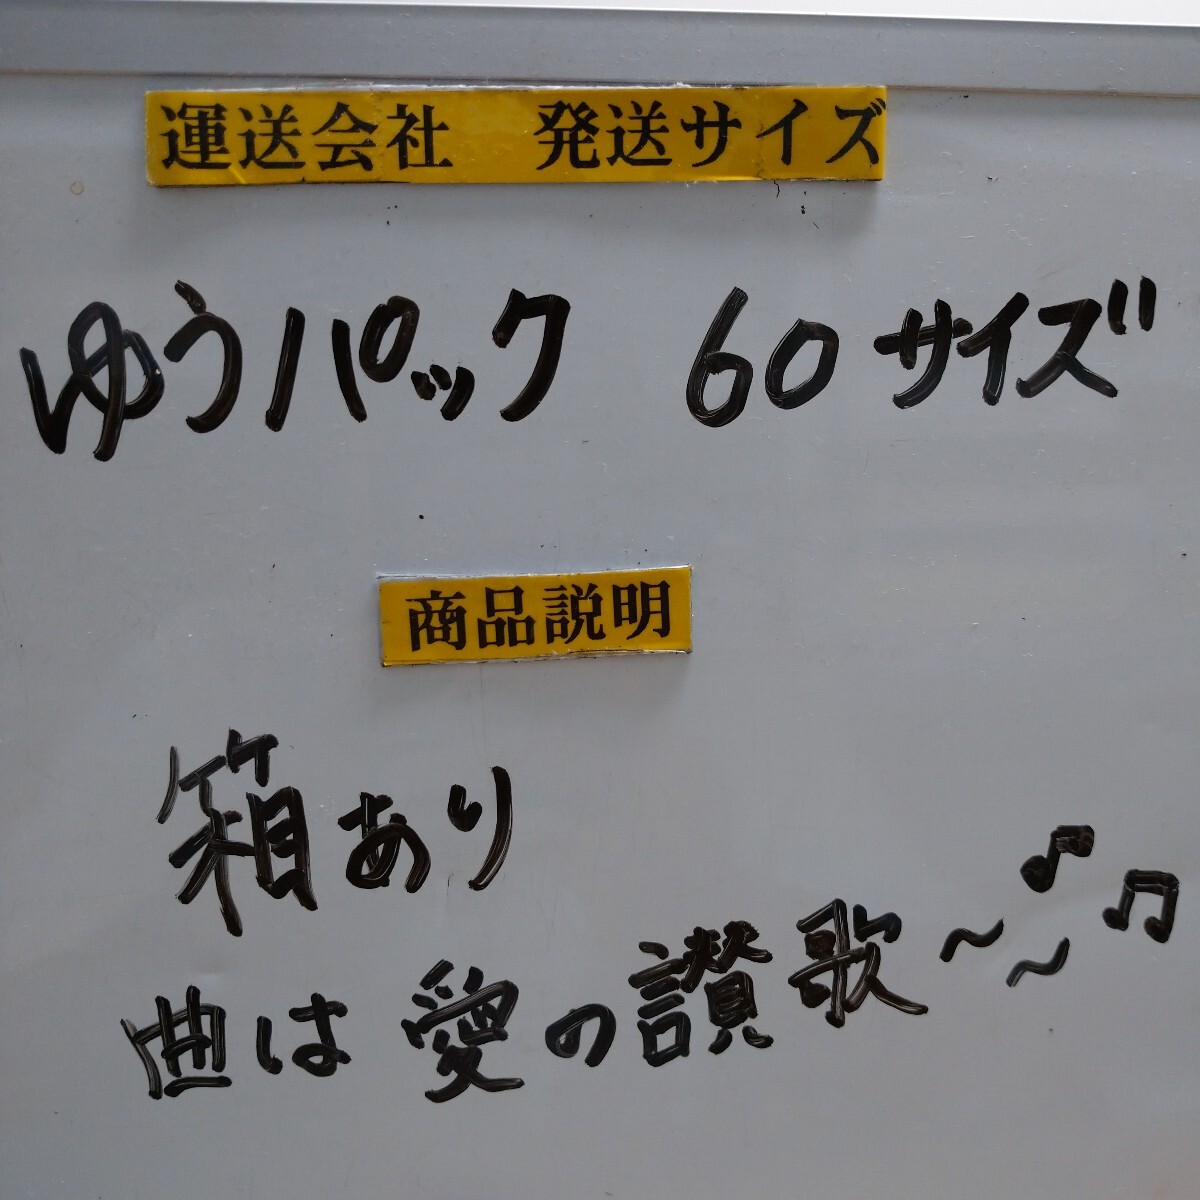 運送会社　発送サイズ
ゆうパック　60サイズ
商品説明
箱あり
曲は愛の讃歌～～♪♫